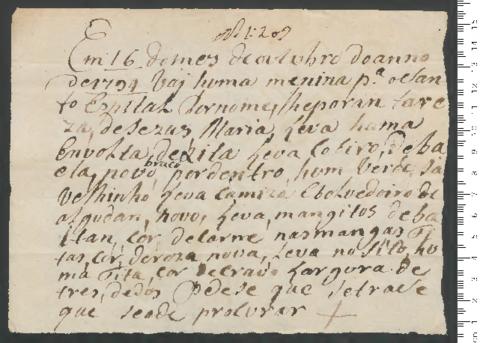 Em 16 do mes de outubro do anno
de 1794 Vai huma menina p.ª o San
to Espital por nome, lhe poran tare
za, de Jezus Maria Leva huma
Envolta, de xita Leva Coeiro, de ba
eta, novo, branco por dentro, hum verde, ja
velhinho Leva Camiza, E bolvedoiro de
algudan, novo, Leva, mangitos de ba
itan, Cor de Carne nas mangas fi
tas, Cor, de roza nova, Leva no hu
ma fita, Cor de Cravo Largura de
tres, dedos Pedese que se trate
que se ade procurar